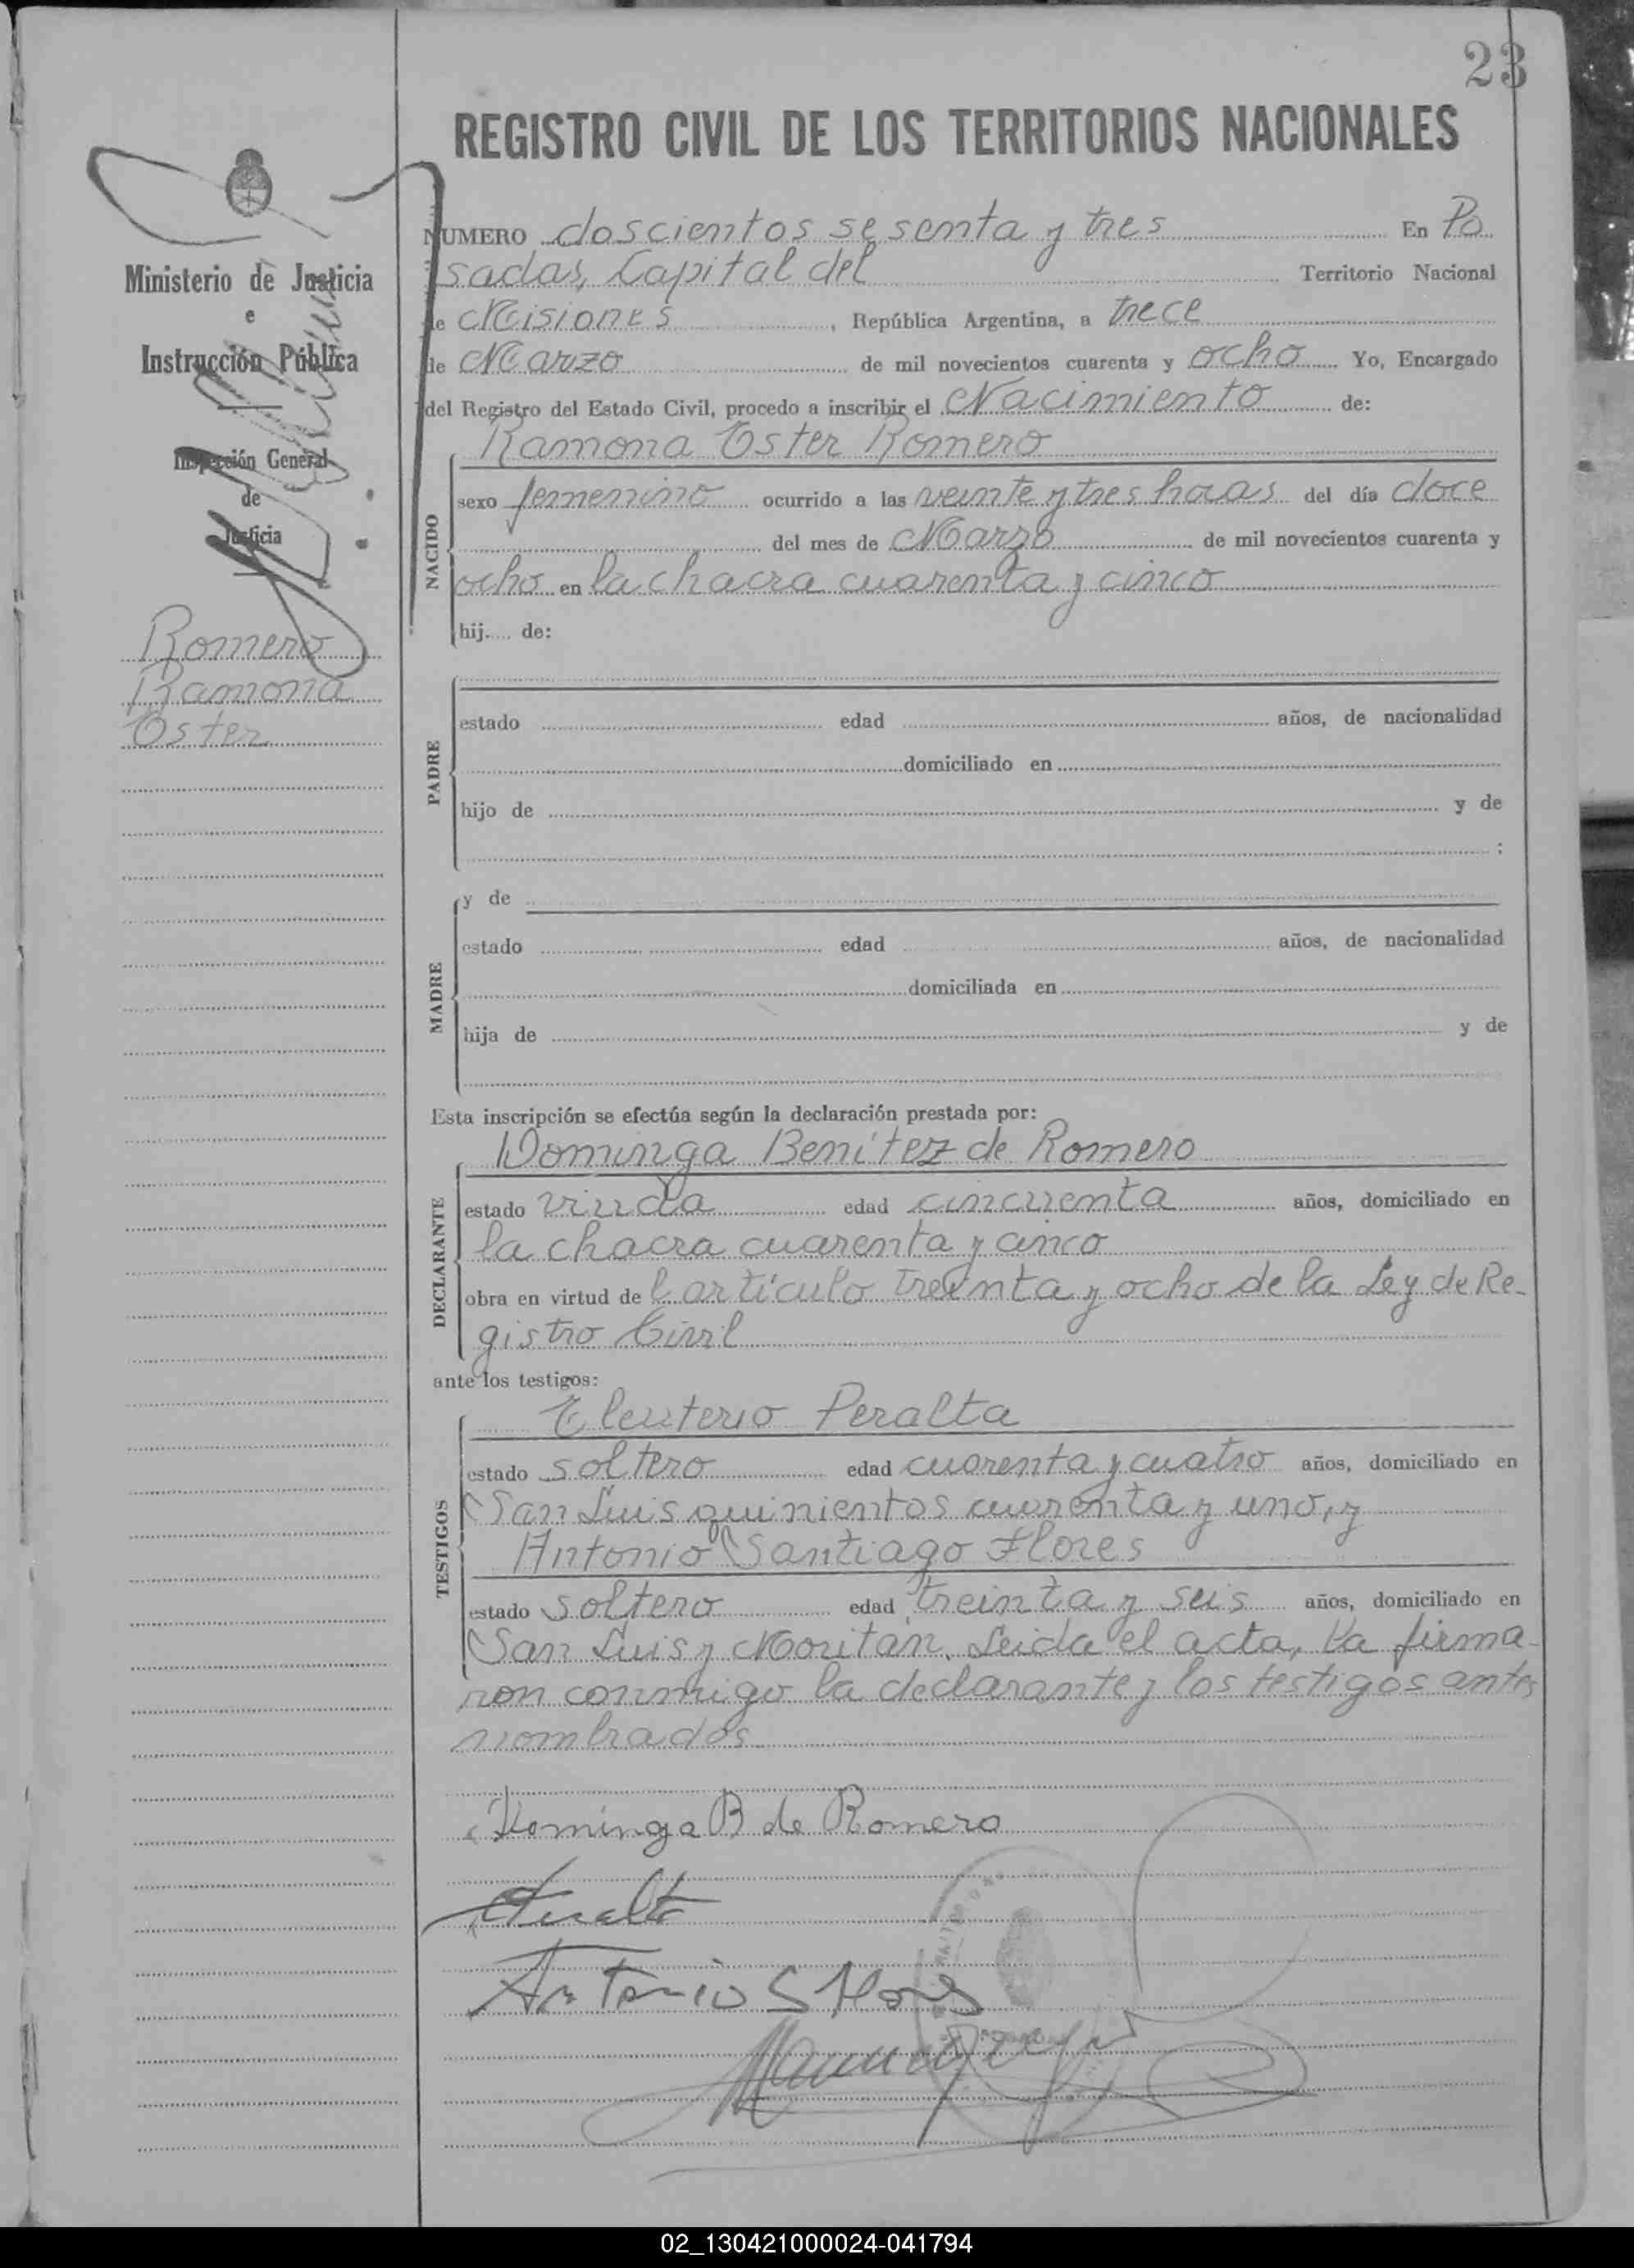 23
REGISTRO CIVIL DE LOS TERRITORIOS NACIONALES
Ministerio de Justicia
e
Instrucción Pública
Inspección General
de
Justicia
Romero
Ramona
Ester
NUMERO doscientos sesenta y tres En Po
sadas, Capital del Territorio Nacional
de Misiones, República Argentina, a trece
de Marzo de mil novecientos cuarenta y ocho Yo, Encargado
del Registro del Estado Civil, procedo a inscribir el Nacimiento de:
Ramona Ester Romero
NACIDO
sexo femenino ocurrido a las veinte y tres horas del día doce
del mes de Marzo de mil novecientos cuarenta y
ocho en la chacra cuarenta y cinco
hij.... de:
PADRE
estado edad años, de nacionalidad
domiciliado en
hijo de y de
;
MADRE
y de
estado edad años, de nacionalidad
domiciliada en
hija de y de
Esta inscripción se efectúa según la declaración prestada por:
Dominga Benítez de Romero
DECLARANTE
estado viuda edad cincuenta años, domiciliado en
la chacra cuarenta y cinco
obra en virtud del artículo treinta y ocho de la Ley de Re-
gistro Civil
ante los testigos:
Eleuterio Peralta
TESTIGOS
estado soltero edad cuarenta y cuatro años, domiciliado en
San Luis quinientos cuarenta y uno, y
Antonio Santiago Flores
estado soltero edad treinta y seis años, domiciliado en
San Luis y Moritán. Leida el acta, la firma-
ron conmigo la declarante y los testigos antes
nombrados
Dominga B de Romero
EPeralta
Antonio S Flores
02_130421000024-041794